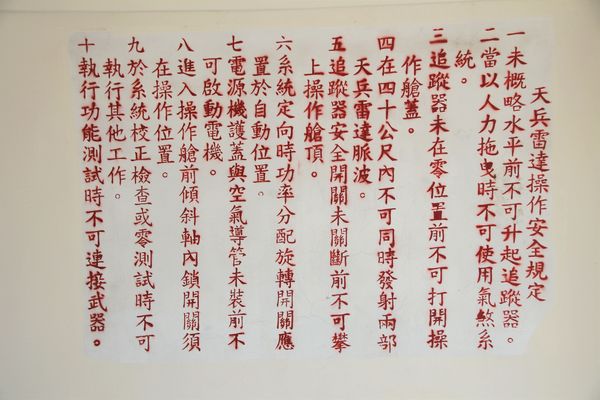 天兵雷達操作安全規定
一未概略水平前不可升起追蹤器。
二當以人力拖曳時不可使用氣煞系
統。
三追蹤器未在零位置前不可打開操
作艙蓋。
四在四十公尺內不可同時發射兩部
天兵雷達脈波。
五追蹤器安全開關未關斷前不可攀
上操作艙頂。
六系統定向時功率分配旋轉開關應
置於自動位置。
七電源機護蓋與空氣導管未裝前不
可啟動電機。
八進入操作艙前傾斜軸內鎖開關須
在操作位置。
九於系統校正檢查或零測試時不可
執行其他工作。
十執行功能測試時不可連接武器。